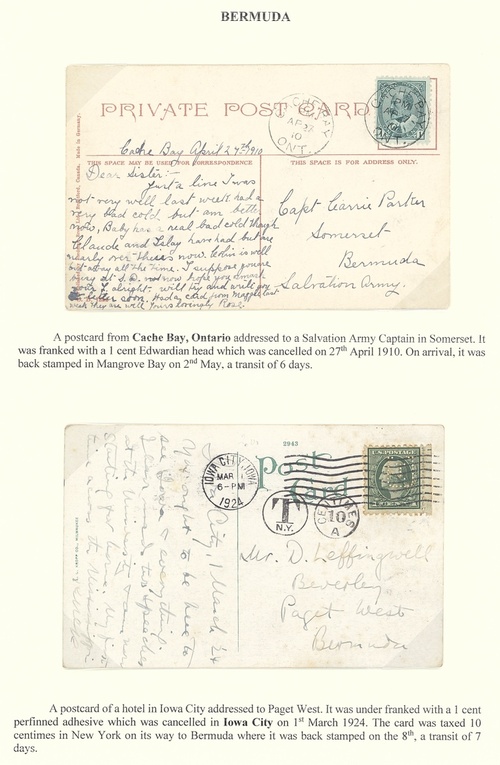 BERMUDA
PRIVATE POST CARD
CACHE BAY
AP 27
10
ONT.
CACHE BAY
PM
10
ONT.
Cache Bay April 27th 1910
THIS SPACE MAY BE USED FOR CORRESPONDENCE
THIS SPACE IS FOR ADDRESS ONLY.
Dear Sister:-
Just a line I was
not very well last week had a
very bad cold but am better
now, Baby has a real bad cold though
Claude and have had but are
nearly over theirs now.
all the time. I suppose you're
busy at
alright. will try and write you
a better soon. Had a card from
week they are well Yours lovingly Rose.
Capt Carrie Parker
Somerset
Bermuda
Salvation Army.
A postcard from Cache Bay, Ontario addressed to a Salvation Army Captain in Somerset. It
was franked with a 1 cent Edwardian head which was cancelled on 27th April 1910. On arrival, it was
back stamped in Mangrove Bay on 2nd May, a transit of 6 days.
2943
Post
Card
IOWA CITY, IOWA
MAR 1
6-PM
1924
U.S. POSTAGE
T
N.Y.
CENTIMES
10
A
City, 1 March '24
You ought to be here to
see & everything.
speeches
at the University & am now
starting for home. My
across the Mississippi
Mr. D. Leffingwell
Beverley
Paget West
Bermuda
A postcard of a hotel in Iowa City addressed to Paget West. It was under franked with a 1 cent
perfinned adhesive which was cancelled in Iowa City on 1st March 1924. The card was taxed 10
centimes in New York on its way to Bermuda where it was back stamped on the 8th, a transit of 7
days.